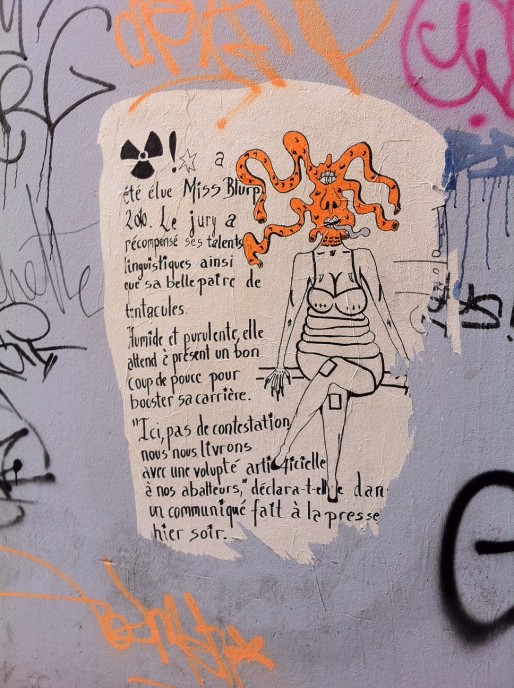 ! a
été élue Miss Blurp
2010. Le jury a
récompensé ses talents
linguistiques ainsi
que sa belle paire de
tentacules.
Humide et purulente, elle
attend à présent un bon
coup de pouce pour
booster sa carrière.
"Ici, pas de contestation
nous nous livrons
avec une volupté artificielle
à nos abatteurs," déclara-t-elle dans
un communiqué fait à la presse
hier soir.